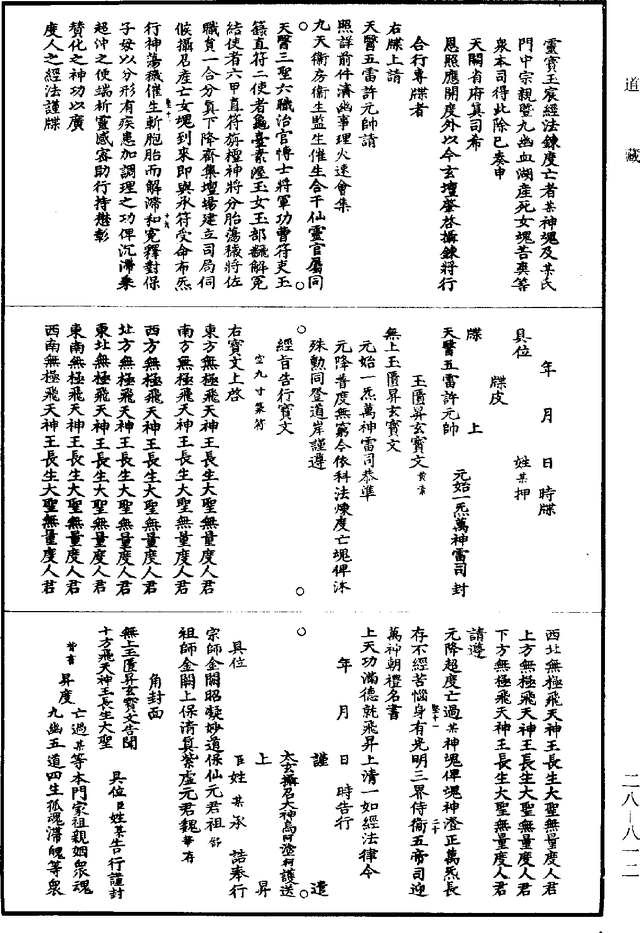 道藏
靈寶玉宸經法鍊度亡者某神魂及某氏
門中宗親暨九幽血湖產死女魂苦爽等
衆本司得此除已奏申
天關省府真司希
恩照應開度外以今玄壇肇啓攝鍊將行
合行專牒者
右牒上請
天醫五雷許元帥請
照詳前件濟幽事理火速會集
九天衛房衛生監生催生合干仙靈官屬同
天醫三聖六職治官博士將軍功曹符吏玉
籙直符二使者龜臺素涇玉女玉部翻解冤
結使者六甲直符旃檀神將分胎蕩穢將佐
職負一合分真下降齋集壇場建立司局伺
候攝召產亡女魂到來即與承符受命布炁
行神蕩穢催生斬胞胎而解滯和冤釋對保
子母以分形有疾患加調理之功俾沉滯乘
超沖之便端祈靈感密助行持懋彰
贊化之神功以廣
度人之經法謹牒
年月日時牒
具位姓某押
牒皮
牒上
天醫五雷許元帥 元始一炁萬神雷司封
玉匱昇玄寶文黃素
無上玉匱昇玄寶文
元始一炁萬神雷司恭準
元降普度無窮今依科法煉度亡魂俾沐
殊勳同登道岸謹遵
經旨告行寶文
空九寸篆符
右寶文上啓
東方無極飛天神王長生大聖無量度人君
南方無極飛天神王長生大聖無量度人君
西方無極飛天神王長生大聖無量度人君
北方無極飛天神王長生大聖無量度人君
東北無極飛天神王長生大聖無量度人君
東南無極飛天神王長生大聖無量度人君
西南無極飛天神王長生大聖無量度人君
西北無極飛天神王長生大聖無量度人君
上方無極飛天神王長生大聖無量度人君
下方無極飛天神王長生大聖無量度人君
請遵
元降超度亡過某神魂俾魂神澄正萬炁長
存不經苦惱身有光明三界侍衛五帝司迎
萬神朝禮名書
上天功滿德就飛昇上清一如經法律令
年月日時告行
謹遣
太玄攝召大神高阿滄柯護送
上昇
具位臣姓某承誥奉行
宗師金闕昭凝妙道保仙元君祖舒
祖師金闕上保清真紫虛元君魏華存
角封面
無上玉匱昇玄寶文告聞
十方飛天神王長生大聖 具位臣姓某告行謹封
背書昇度 亡過某等本門家祖親姻衆魂
九幽五道四生孤魂滯魄等衆
二八—八一二